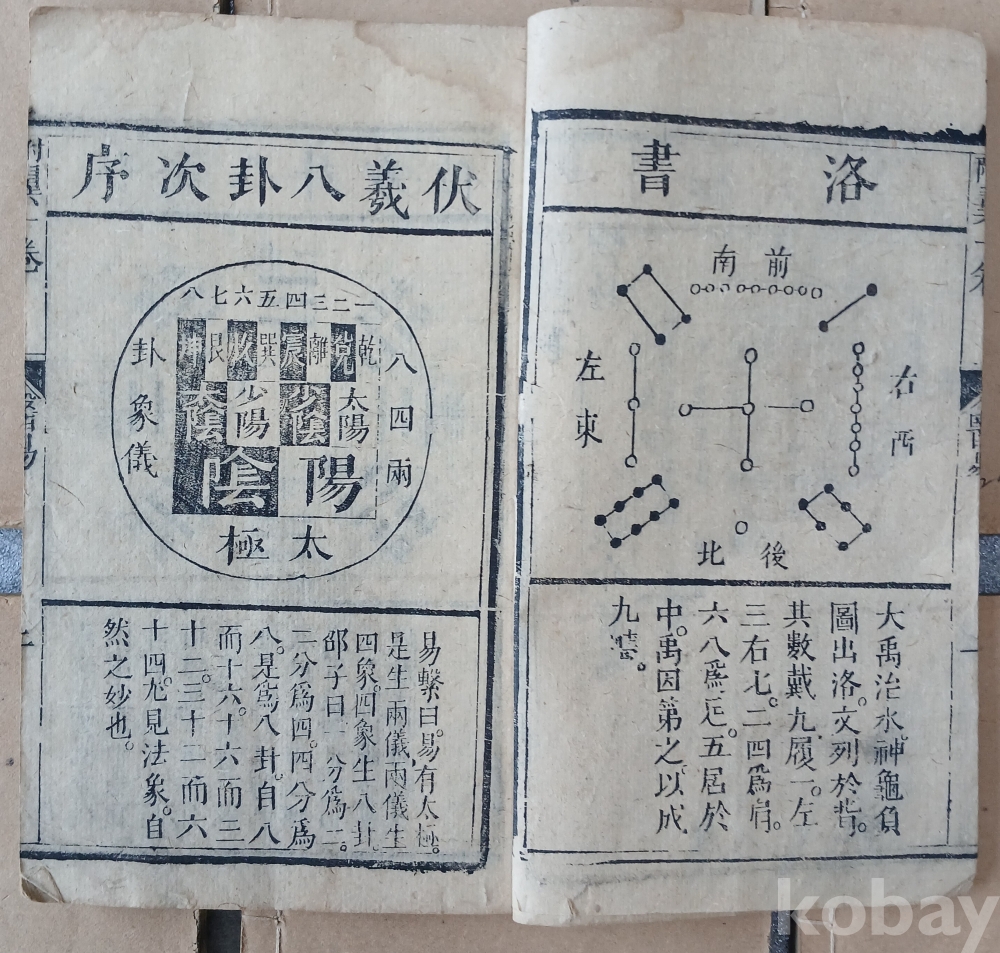 洛書
前南
右西
左東
後北
大禹治水神龜負
圖出洛。文列於背。
其數戴九履一。左
三右七。二四爲肩。
六八爲足。五居於
中。禹因第之以成
九疇。
伏羲八卦次序
一二三四五六七八
乾兌離震巽坎艮坤
太陽少陰少陽太陰
陽陰
八四兩
卦象儀
太極
易繫曰。易有太極。
是生兩儀。兩儀生
四象。四象生八卦。
邵子曰。一分爲二。
二分爲四。四分爲
八。是爲八卦。自八
而十六。十六而三
十二。三十二而六
十四。尤見法象。自
然之妙也。
kobay